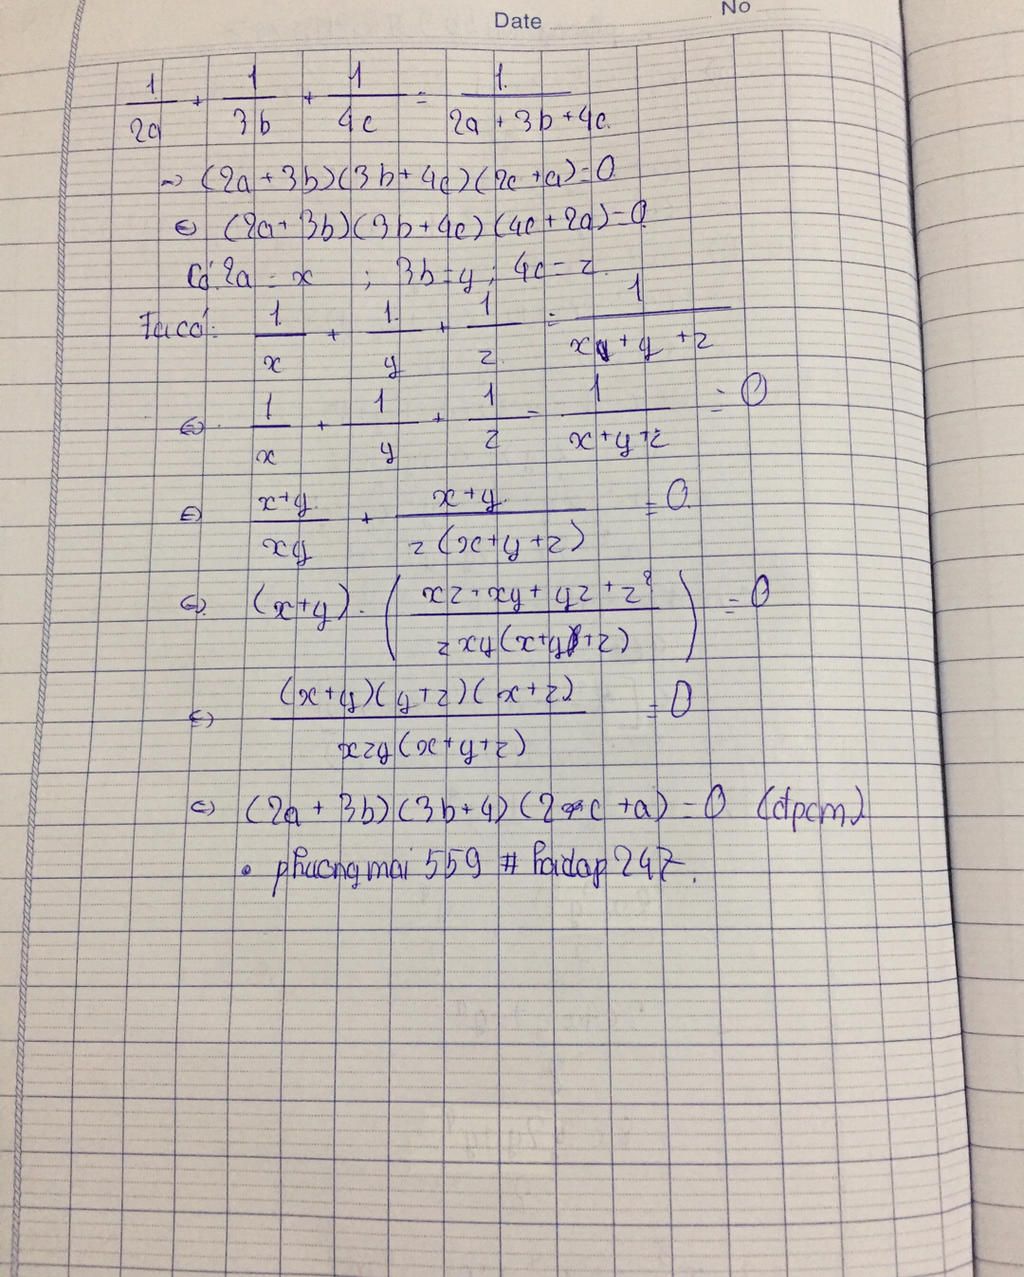 Date No
1/2a + 1/3b + 1/4c = 1/2a + 3b + 4c
=> (2a + 3b)(3b + 4c)(2c + a) = 0
<=> (2a + 3b)(3b + 4c)(4c + 2a) = 0
Có 2a = x ; 3b = y ; 4c = z
Ta có: 1/x + 1/y + 1/z = 1/x + y + z
<=> 1/x + 1/y + 1/z - 1/x + y + z = 0
<=> x+y/yx + x+y/z(x+y+z) = 0
<=> (x+y) . (zx + xy + zy + z²/zxy(x+y+z)) = 0
<=> (x+y)(y+z)(x+z)/xzy(x+y+z) = 0
<=> (2a + 3b)(3b + 4)(2c + a) = 0 (đpcm)
• phuongmai 559 # hoidap 247.